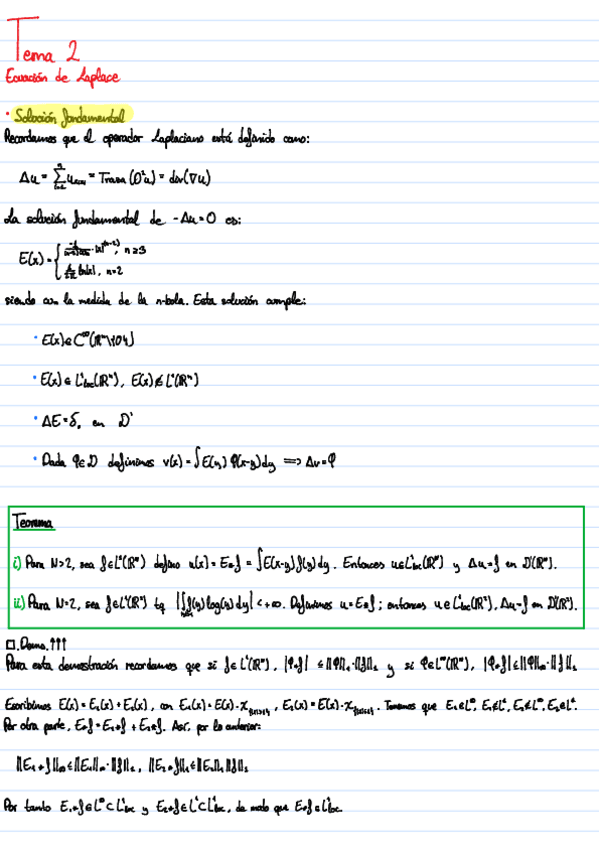 Tema 2
Ecuación de Laplace
• Solución fundamental
Recordamos que el operador Laplaciano está definido como:
Δu = Σ u = Traza (D²u) = div(∇u)
La solución fundamental de -Δu=0 es:
E(x) = { |x|, n≥3
ln|x|, n=2
siendo ωn la medida de la n-bola. Esta solución cumple:
• E(x)∈C^∞(ℝⁿ\{0})
• E(x)∈ L¹loc(ℝⁿ), E(x)∉ L¹(ℝⁿ)
• ΔE=δ₀ en D'
• Dada φ∈D definimos v(x)=∫E(y)φ(x-y)dy ⟹ Δv=φ
Teorema
i) Para N>2, sea f∈L¹(ℝⁿ) defino u(x)=E*f=∫E(x-y)f(y)dy. Entonces u∈L¹loc(ℝⁿ) y Δu=f en D'(ℝⁿ).
ii) Para N=2, sea f∈L¹(ℝⁿ) tq |∫f(y)log(y)dy|<+∞. Definimos u=E*f; entonces u∈L¹loc(ℝⁿ), Δu=f en D'(ℝⁿ).
□. Demo. ↑↑↑
Para esta demostración recordamos que si f∈L¹(ℝⁿ), |φ*f| ≤‖φ‖₁·‖f‖₁ y si φ∈L^∞(ℝⁿ), |φ*f|≤‖φ‖∞·‖f‖₁
Escribimos E(x)=E₁(x)+E₂(x), con E₁(x)=E(x)·χ, E₂(x)=E(x)·χ. Tenemos que E₁∈L^∞, E₁∉L¹, E₂∉L^∞, E₂∈L¹.
Por otra parte, E*f=E₁*f+E₂*f. Así, por lo anterior:
‖E₁*f‖∞≤‖E₁‖∞·‖f‖₁, ‖E₂*f‖₁≤‖E₂‖₁‖f‖₁
Por tanto E₁*f∈L^∞⊂L¹loc y E₂*f∈L¹⊂L¹loc, de modo que E*f∈L¹loc.